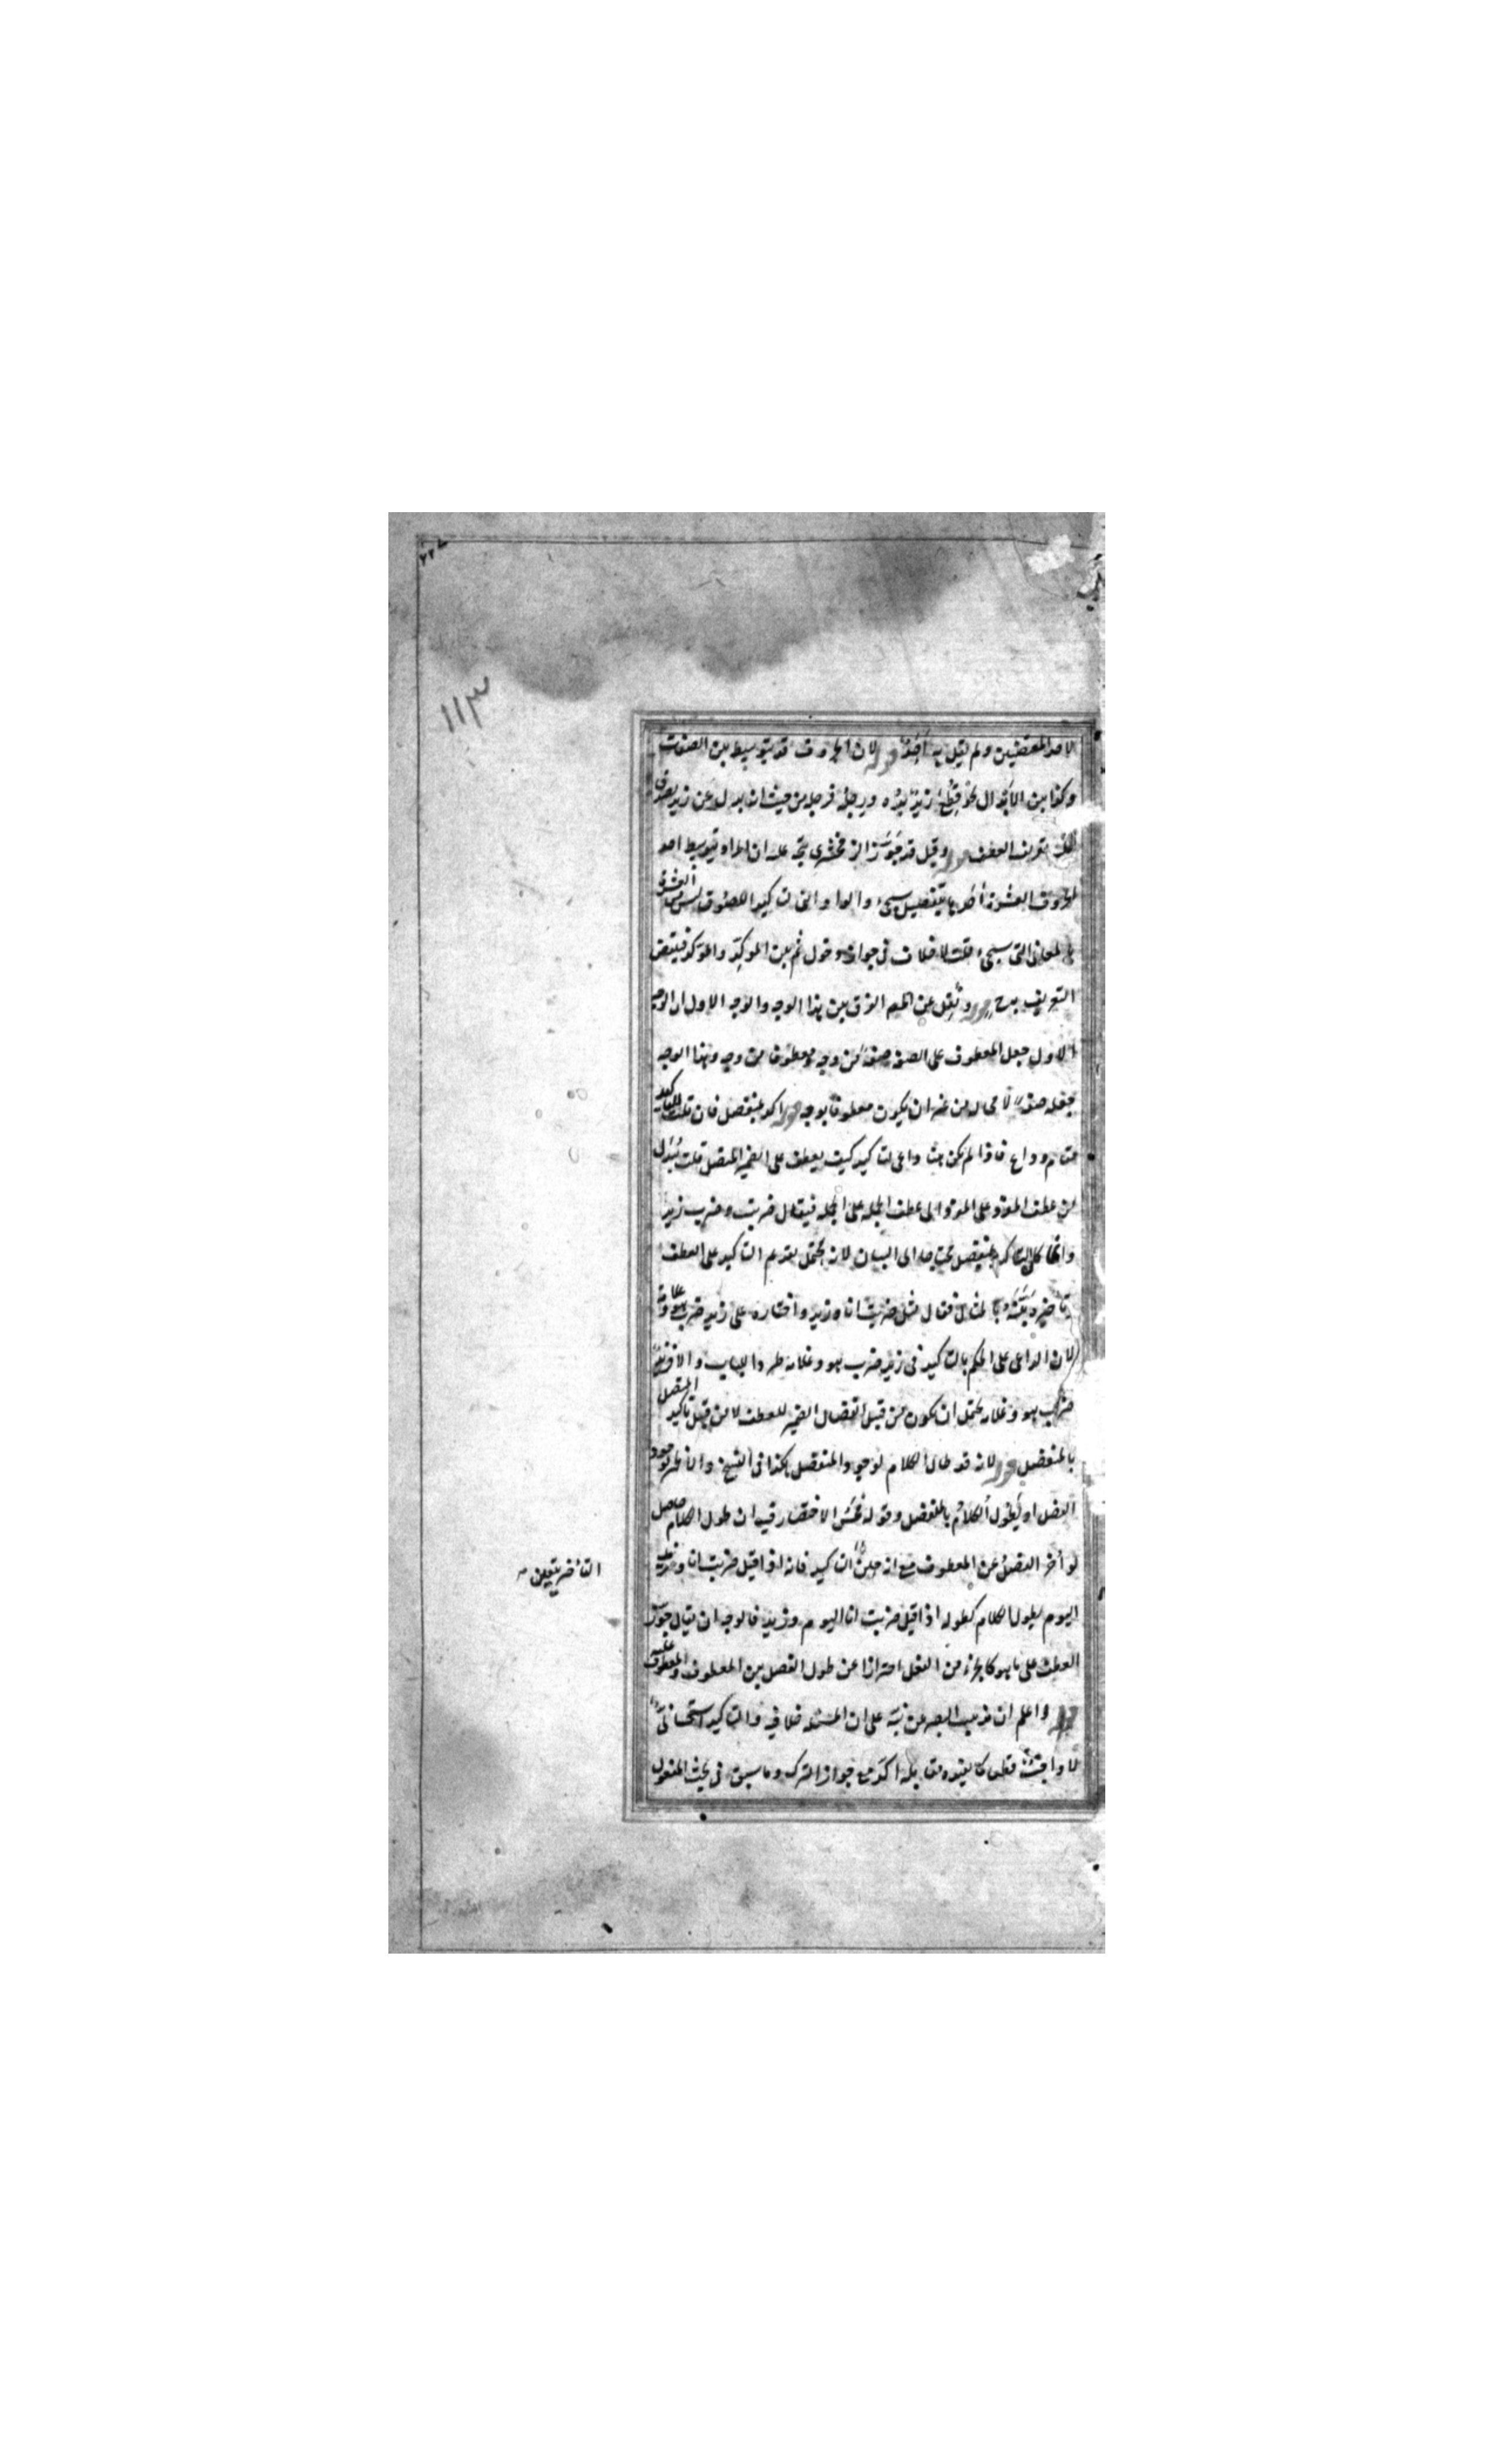 ١١٣
لاحد المعتضين ولم يقل به احد قوله لان الحروف قد يتوسط بين الصفات
وكذا بين الابدال نحو قطع زيد يده ورجله فرجله من حيث انه بدل عن زيد يصدق
تعريف العطف قوله وقيل قد جوز الزمخشري يتجه عليه ان المراد بتوسيط احد
الحروف العشرة اظهر بتفصيل سيجيء والواو التى لتاكيد اللصوق ليس من العشرة
بالمعانى التى سيجيء قلت لا خلاف فى جواز دخول ثم بين الموكِّد والموكَّد فينتقض
التعريف به ح قوله ونقل عن المص الفرق بين هذا الوجه والوجه الاول ان الوجه
الاول جعل المعطوف على الصفة صفة من وجه ومعطوفا من وجه وهذا الوجه
جعله صفة لا محالة من غير ان يكون معطوفا بوجه قوله اكد بمنفصل فان قلت للتاكيد
مقام وداع فاذا لم يكن هناك داع لتاكيد كيف يعطف على الضمير المتصل قلت يعدل
من عطف المفرد على المفرد الى عطف الجملة على الجملة فيقال ضربت وضرب زيد
وانما كان التاكيد بمنفصل محتاجا الى البيان لانه يحتمل تقديم التاكيد على العطف
تاخيره بينه بالمثال فقال مثل ضربت انا وزيد واختاره على زيد ضرب هو وغلامه
لان الداعى على الحكم بالتاكيد فى زيد ضرب هو وغلامه طرد الباب والا فزيد
ضرب هو وغلامه يحتمل ان يكون من قبيل انفصال الضمير للعطف لا من قبيل تاكيد المتصل
بالمنفصل قوله لانه قد طال الكلام لوجود المنفصل هكذا فى النسخ والاظهر لوجود
الفصل او يطول الكلام بالمنفصل وقوله فحسن الاختصار فيه ان طول الكلام حاصل
لو أخر الفصل عن المعطوف مع انه ح التاكيد فانه اذا قيل ضربت انا وزيد
اليوم يطول الكلام كطوله اذا قيل ضربت انا اليوم وزيد فالوجه ان يقال جوز
العطف على ما هو كالجزء من الفعل احترازا عن طول الفصل بين المعطوف والمعطوف عليه
قوله واعلم ان مذهب البصريين نبه على ان المسئلة خلافية والتاكيد استحسانى
لا واجب قطعى كما يفيده مقابلة اكد مع جواز الترك وما سبق فى بحث المفعول